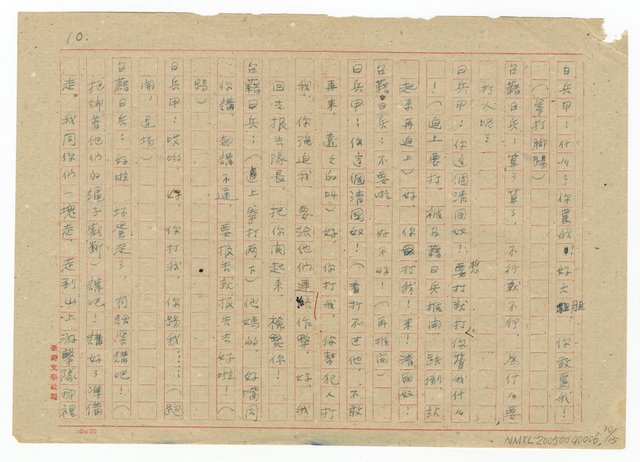 10.
日兵甲：什么？你罵我！好大胆，你敢罵我！
（拳打脚踢）
台籍日兵：算了算了，不行就不行，為什么要
打人呢？
日兵甲：你這個清国奴！想要打我，你替我什么
！（迫上要打，被台籍日兵推開，跌倒，站
起來再迫上）好，你打我！來！清国奴！
台籍日兵：不要啦，好不好！（再推開）
日兵甲：你這個清国奴！（看打不过他，不敢
再來，遠之的叫）好，你打我，你幫犯人打
我，你强迫我，要給他們連絡作弊，好，我
回去报告隊長，把你関起來，槍斃你！
台籍日兵：（追上拳打两下）他媽的，好嘴
你講，都講不通，要报告就报告去好啦！（
踢）
日兵甲：哎喲，好，你打我，你踢我……（跑
開，退場）
台籍日兵：好啦，坏蛋走了，有話深講吧！（
把綁著他們的繩子割断）講吧！講好了準備
走。我同你們一塊走，走到山上游擊隊那裡
10×20
NMTL20050040006
10/15